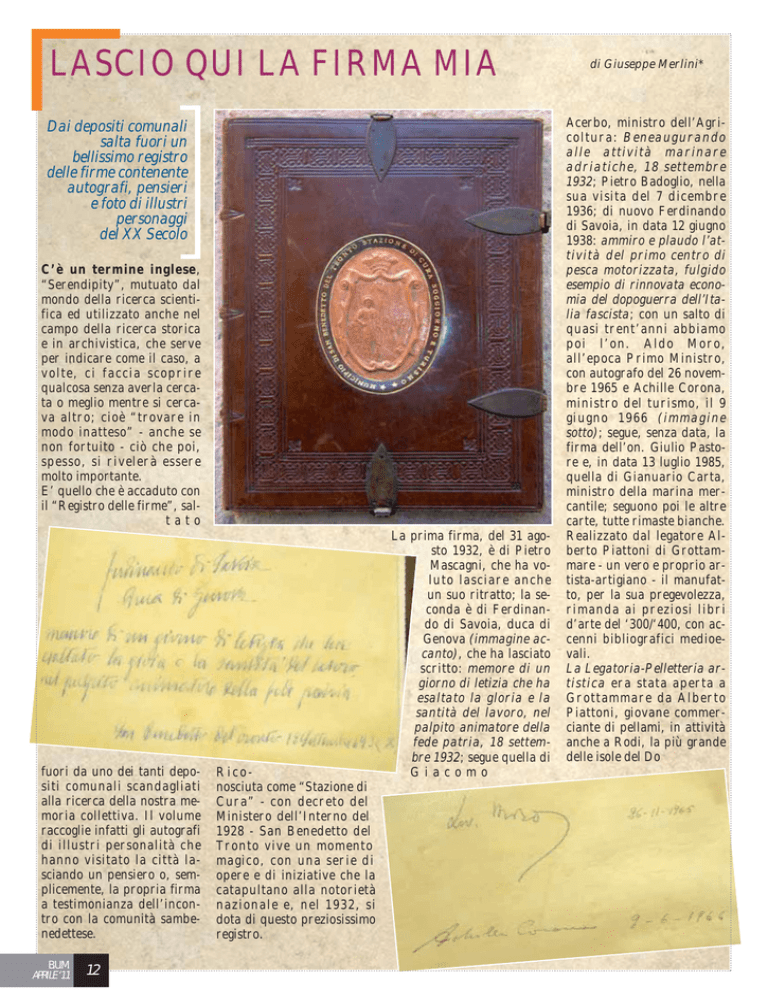 LASCIO QUI LA FIRMA MIA
di Giuseppe Merlini*
Dai depositi comunali
salta fuori un
bellissimo registro
delle firme contenente
autografi, pensieri
e foto di illustri
personaggi
del XX Secolo
C'è un termine inglese,
"Serendipity", mutuato dal
mondo della ricerca scienti-
fica ed utilizzato anche nel
campo della ricerca storica
e in archivistica, che serve
per indicare come il caso, a
volte, ci faccia scoprire
qualcosa senza averla cerca-
ta o meglio mentre si cerca-
va altro; cioè "trovare in
modo inatteso" - anche se
non fortuito - ciò che poi,
spesso, si rivelerà essere
molto importante.
E' quello che è accaduto con
il "Registro delle firme", sal-
tato
fuori da uno dei tanti depo-
siti comunali scandagliati
alla ricerca della nostra me-
moria collettiva. Il volume
raccoglie infatti gli autografi
di illustri personalità che
hanno visitato la città la-
sciando un pensiero o, sem-
plicemente, la propria firma
a testimonianza dell'incon-
tro con la comunità sambe-
nedettese.
MUNICIPIO DI SAN BENEDETTO DEL TRONTO STAZIONE DI CURA SOGGIORNO E TURISMO
Ferdinando di Savoia
Duca di Genova
memore di un giorno di letizia che ha
esaltato la gloria e la santità del lavoro
nel palpito animatore della fede patria
San Benedetto del Tronto
Rico-
nosciuta come "Stazione di
Cura" - con decreto del
Ministero dell'Interno del
1928 - San Benedetto del
Tronto vive un momento
magico, con una serie di
opere e di iniziative che la
catapultano alla notorietà
nazionale e, nel 1932, si
dota di questo preziosissimo
registro.
La prima firma, del 31 ago-
sto 1932, è di Pietro
Mascagni, che ha vo-
luto lasciare anche
un suo ritratto; la se-
conda è di Ferdinan-
do di Savoia, duca di
Genova (immagine ac-
canto), che ha lasciato
scritto: memore di un
giorno di letizia che ha
esaltato la gloria e la
santità del lavoro, nel
palpito animatore della
fede patria, 18 settem-
bre 1932; segue quella di
Giacomo
Acerbo, ministro dell'Agri-
coltura: Beneaugurando
alle attività marinare
adriatiche, 18 settembre
1932; Pietro Badoglio, nella
sua visita del 7 dicembre
1936; di nuovo Ferdinando
di Savoia, in data 12 giugno
1938: ammiro e plaudo l'at-
tività del primo centro di
pesca motorizzata, fulgido
esempio di rinnovata econo-
mia del dopoguerra dell'Ita-
lia fascista; con un salto di
quasi trent'anni abbiamo
poi l'on. Aldo Moro,
all'epoca Primo Ministro,
con autografo del 26 novem-
bre 1965 e Achille Corona,
ministro del turismo, il 9
giugno 1966 (immagine
sotto); segue, senza data, la
firma dell'on. Giulio Pasto-
re e, in data 13 luglio 1985,
quella di Gianuario Carta,
ministro della marina mer-
cantile; seguono poi le altre
carte, tutte rimaste bianche.
Realizzato dal legatore Al-
berto Piattoni di Grottam-
mare - un vero e proprio ar-
tista-artigiano - il manufat-
to, per la sua pregevolezza,
rimanda ai preziosi libri
d'arte del '300/'400, con ac-
cenni bibliografici medioe-
vali.
La Legatoria-Pelletteria ar-
tistica era stata aperta a
Grottammare da Alberto
Piattoni, giovane commer-
ciante di pellami, in attività
anche a Rodi, la più grande
delle isole del Do
Moro 26-11-1965
Achille Corona 9-6-1966
BUM
APRILE '11
12